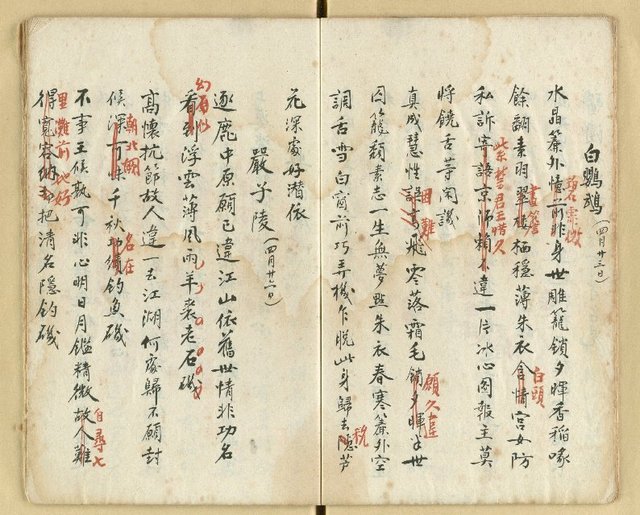 白鸚鵡(四月廿六日)
水晶簾外悟前非身世雕籠鎖夕暉香稻啄
餘翻素羽翠樓栖穩薄朱衣含情宮女防
私訴寄語京師願不違一片冰心圖報主莫
將饒舌等閑譏
真成慧性語高飛零落霜毛鎖夕暉半世
囚籠頹素志一生無夢點朱衣春寒簾外空
調舌雪白窗前巧弄機乍脫此身歸去隱芦
花深處好潛依
嚴子陵(四月廿六日)
逐鹿中原願已違江山依舊世情非功名
看到浮雲薄風雨羊裘老石磯
高懷抗節故人違一去江湖何處歸不願封
侯 千秋 釣魚磯
不事王侯孰可非心明日月鑑精微故人難
得寬容 把清名隱釣磯
白頭
願久違
困難
名在
自尋七
里灘前地好